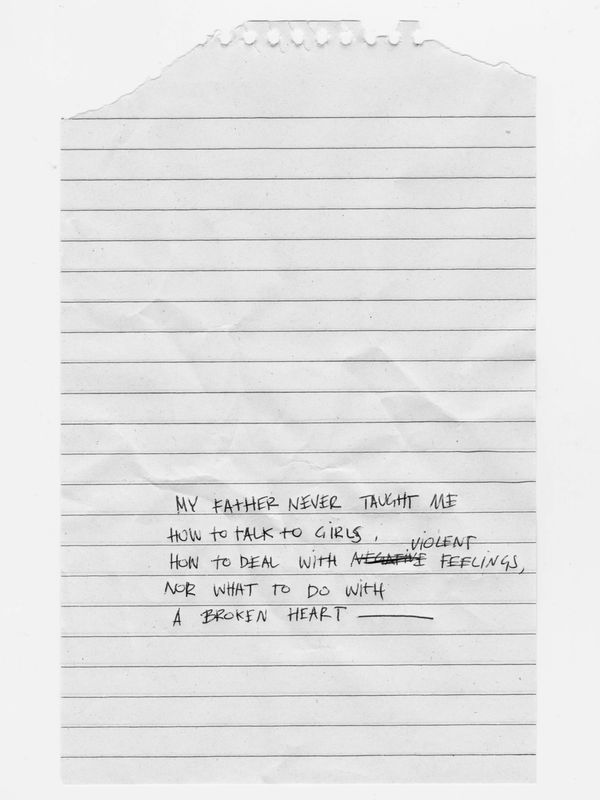 MY FATHER NEVER TAUGHT ME
HOW TO TALK TO GIRLS,
HOW TO DEAL WITH NEGATIVE VIOLENT FEELINGS,
NOR WHAT TO DO WITH
A BROKEN HEART —